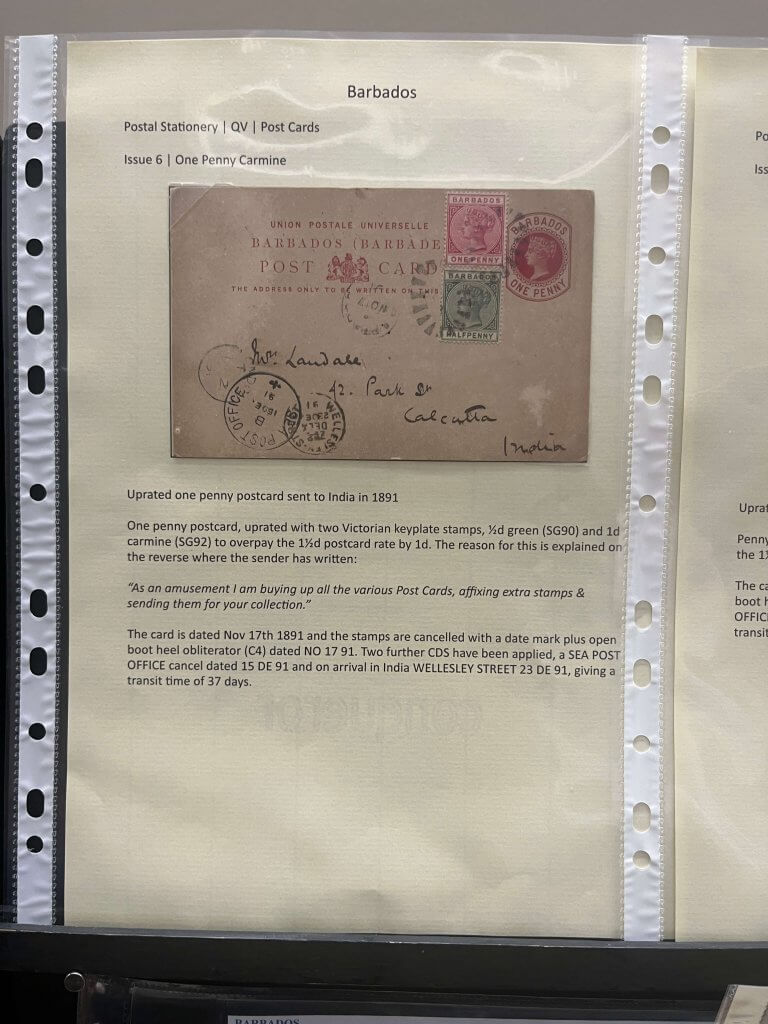 Barbados
Postal Stationery | QV | Post Cards
Issue 6 | One Penny Carmine
UNION POSTALE UNIVERSELLE
BARBADOS (BARBADE
POST CARD
THE ADDRESS ONLY TO BE WRITTEN ON THIS
BARBADOS
ONE PENNY
BARBADOS
HALFPENNY
BARBADOS
ONE PENNY
Mrs. Landale
42. Park St
Calcutta
India
POST OFFICE
B
15 DE
91
WELLESLEY
DELA
23 DE
91
Uprated one penny postcard sent to India in 1891
One penny postcard, uprated with two Victorian keyplate stamps, ½d green (SG90) and 1d
carmine (SG92) to overpay the 1½d postcard rate by 1d. The reason for this is explained on
the reverse where the sender has written:
“As an amusement I am buying up all the various Post Cards, affixing extra stamps &
sending them for your collection.”
The card is dated Nov 17th 1891 and the stamps are cancelled with a date mark plus open
boot heel obliterator (C4) dated NO 17 91. Two further CDS have been applied, a SEA POST
OFFICE cancel dated 15 DE 91 and on arrival in India WELLESLEY STREET 23 DE 91, giving a
transit time of 37 days.
conqueror
Po
Iss
Uprat
Penny
the 1½
The ca
boot h
OFFICE
transit
BARBADOS